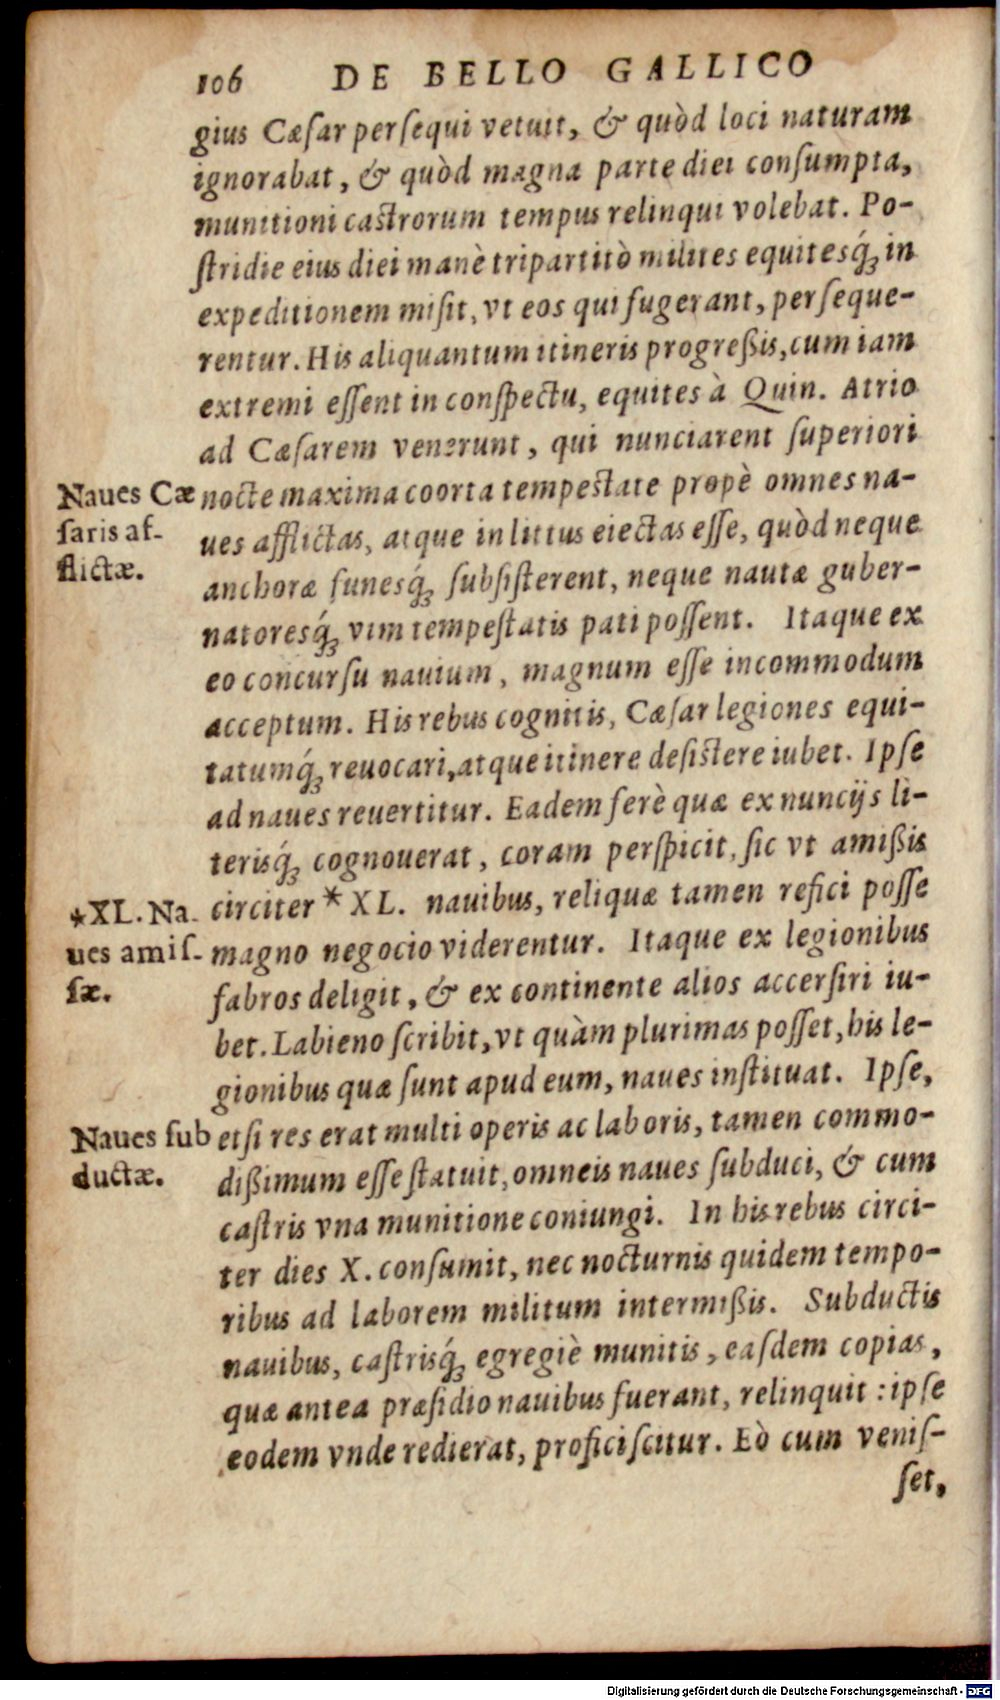 106 DE BELLO GALLICO
gius Cæſar perſequi vetuit, & quòd loci naturam
ignorabat, & quòd magna parte diei conſumpta,
munitioni caſtrorum tempus relinqui volebat. Po-
ſtridie eius diei manè tripartitò milites equitesq́; in
expeditionem miſit, vt eos qui fugerant, perſeque-
rentur. His aliquantum itineris progreßis, cum iam
extremi eſſent in conſpectu, equites à Quin. Atrio
ad Cæſarem venerunt, qui nunciarent ſuperiori
Naues Cæ
ſaris af-
flictæ.
nocte maxima coorta tempeſtate propè omnes na-
ues afflictas, atque in littus eiectas eſſe, quòd neque
anchoræ funesq́; ſubſiſterent, neque nautæ guber-
natoresq́; vim tempeſtatis pati poſſent. Itaque ex
eo concurſu nauium, magnum eſſe incommodum
acceptum. His rebus cognitis, Cæſar legiones equi-
tatumq́; reuocari, atque itinere deſiſtere iubet. Ipſe
ad naues reuertitur. Eadem ferè quæ ex nuncijs li-
terisq́; cognouerat, coram perſpicit, ſic vt amißis
*XL. Na-
ues amiſ-
ſæ.
circiter * XL. nauibus, reliquæ tamen refici poſſe
magno negocio viderentur. Itaque ex legionibus
fabros deligit, & ex continente alios accerſiri iu-
bet. Labieno ſcribit, vt quàm plurimas poſſet, his le-
gionibus quæ ſunt apud eum, naues inſtituat. Ipſe,
Naues ſub
ductæ.
etſi res erat multi operis ac laboris, tamen commo-
dißimum eſſe ſtatuit, omneis naues ſubduci, & cum
caſtris vna munitione coniungi. In his rebus circi-
ter dies X. conſumit, nec nocturnis quidem tempo-
ribus ad laborem militum intermißis. Subductis
nauibus, caſtrisq́; egregiè munitis, eaſdem copias,
quæ antea præſidio nauibus fuerant, relinquit : ipſe
eodem vnde redierat, proficiſcitur. Eò cum veniſ-
ſet,
Digitalisierung gefördert durch die Deutsche Forschungsgemeinschaft - DFG